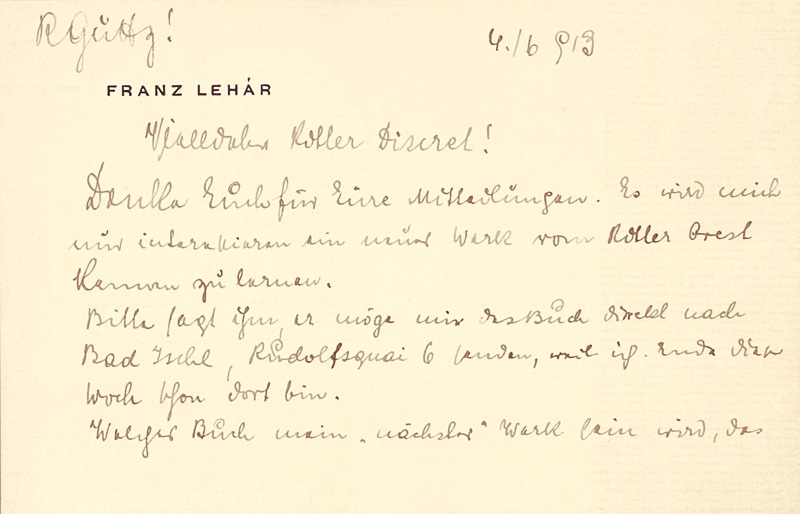 R Gettz! 4./6 913
FRANZ LEHÁR
Vielledler Ritter Discret!
Danke Euch für Eure Mitteilungen. Es wird mich
nur interessieren ein neues Werk vom Ritter Orest
kennen zu lernen.
Bitte sagt ihm, er möge mir das Buch direkt nach
Bad Ischl, Rudolfsquai 6 senden, weil ich Ende dieser
Woch schon dort bin.
Welches Buch mein „nächstes" Werk sein wird, das